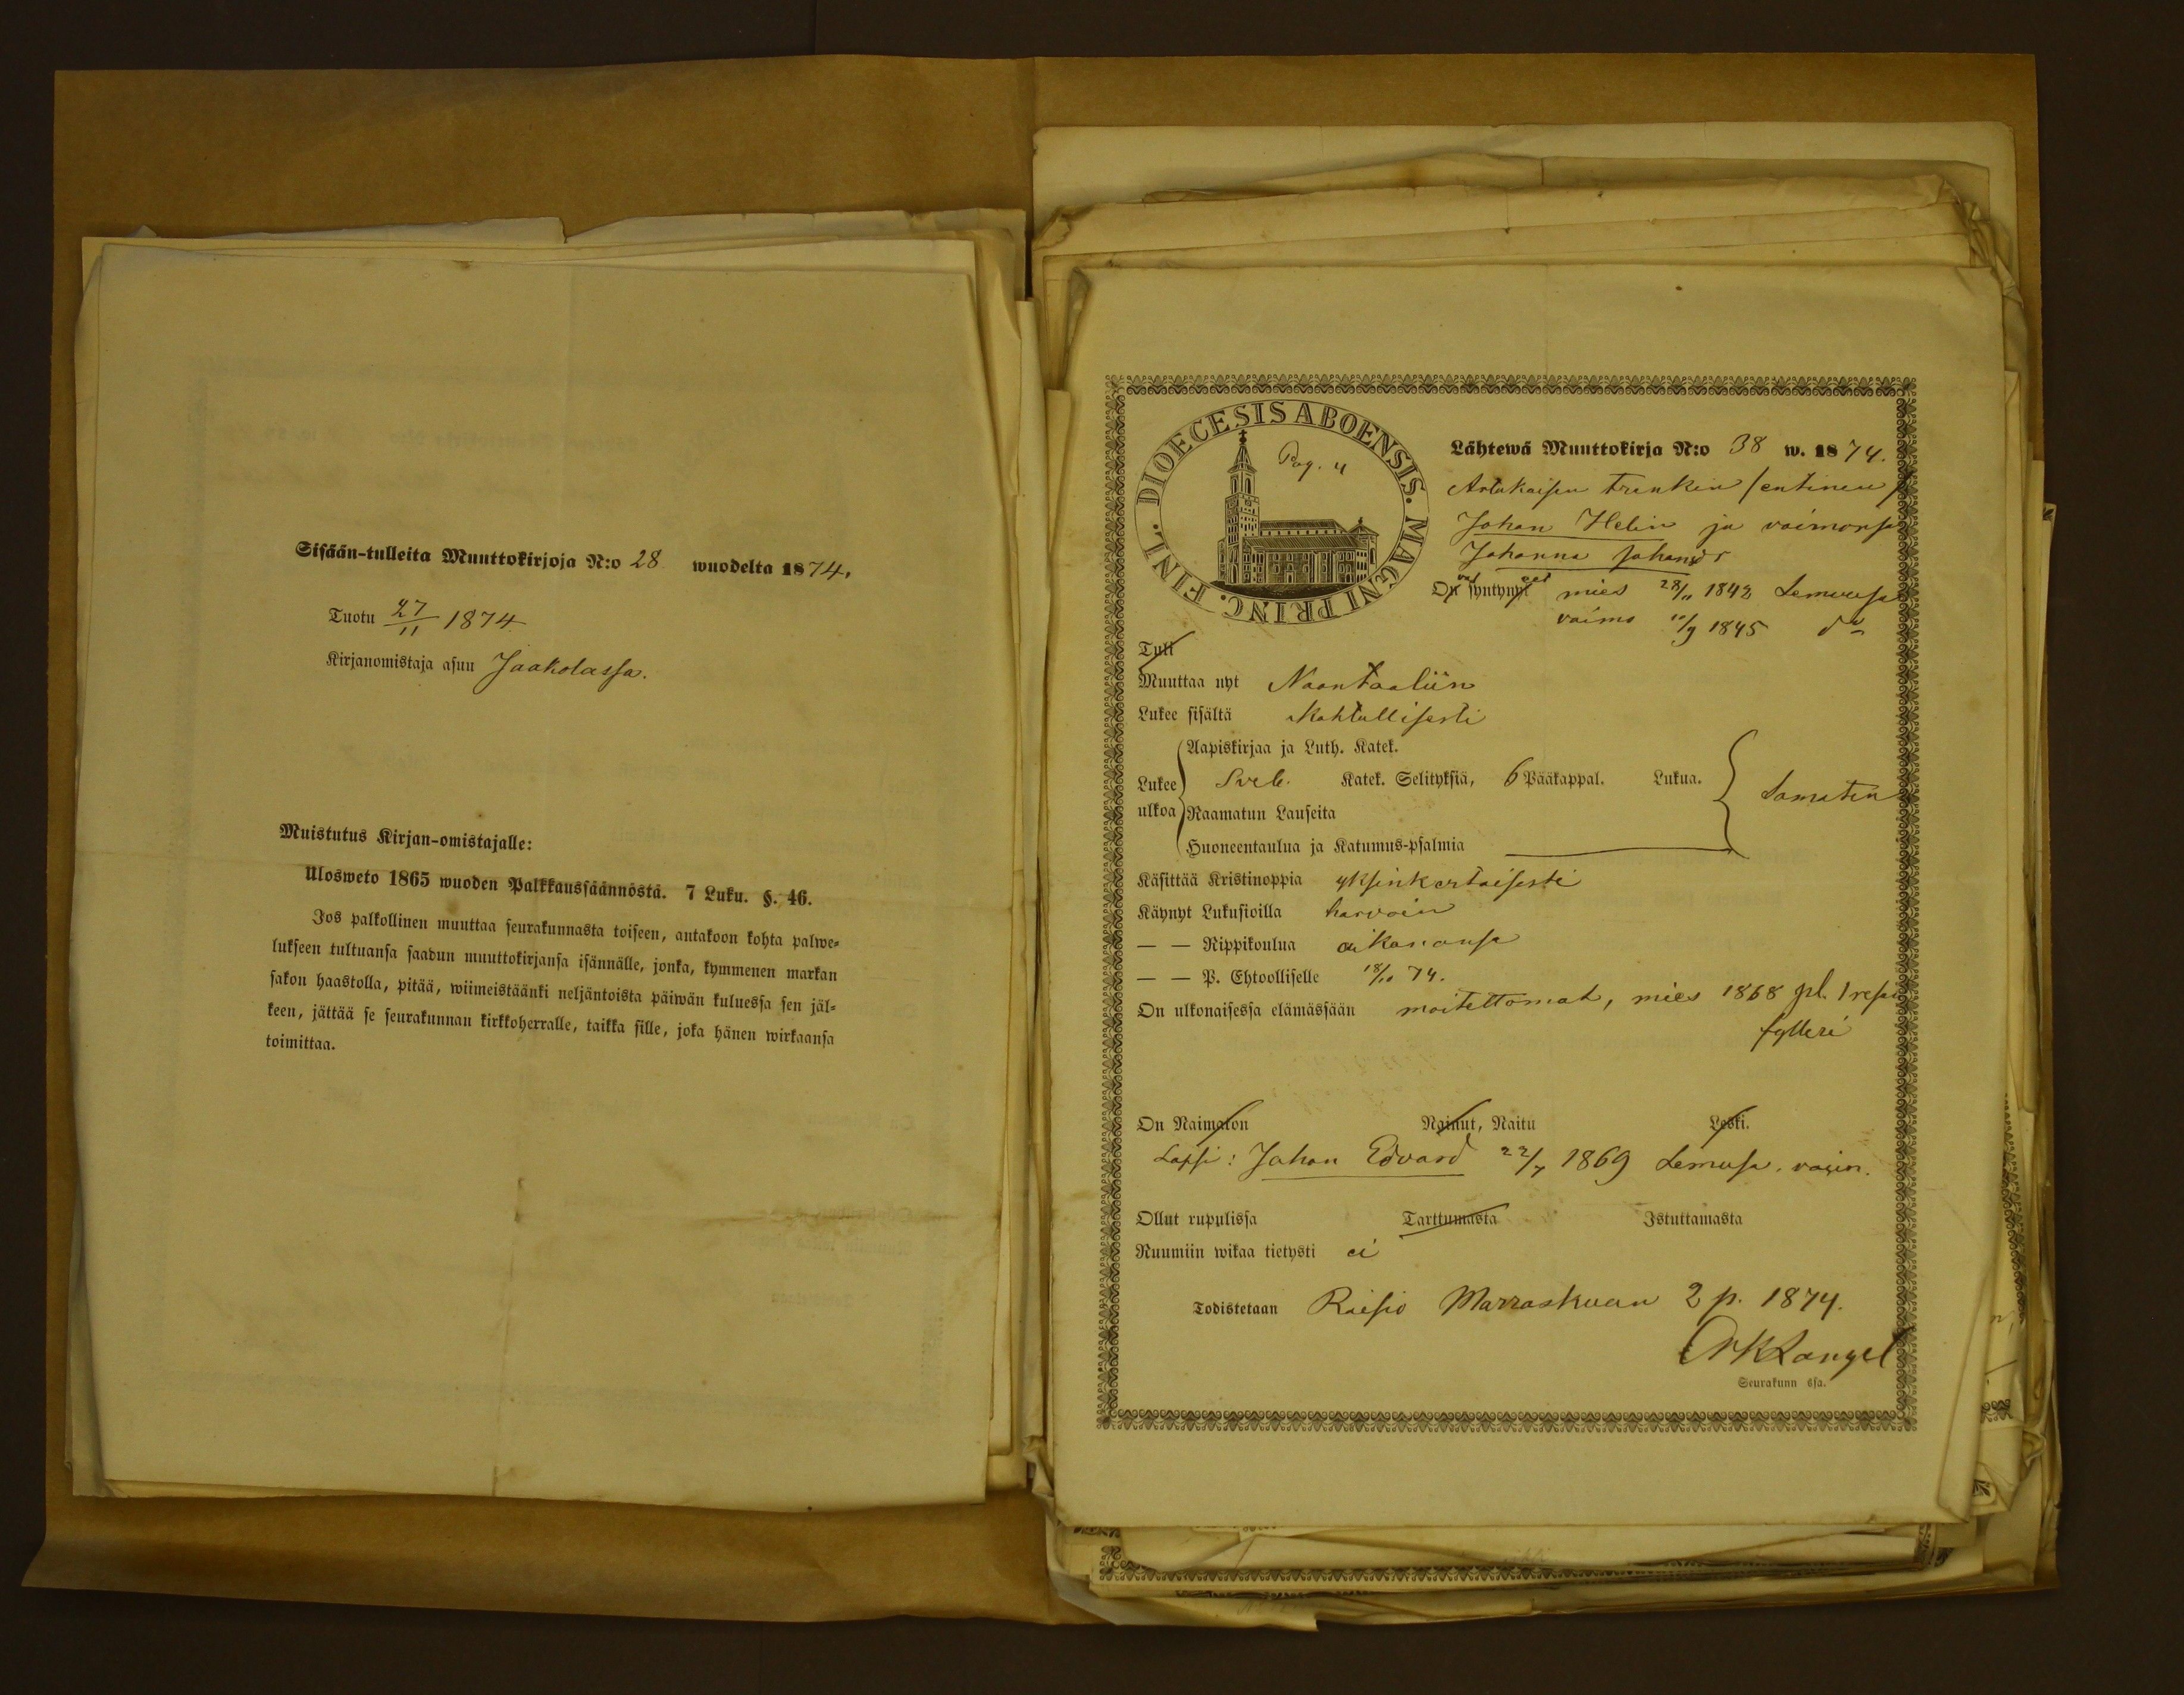 Sisään-tulleita Muuttokirjoja N:o 28 wuodelta 1874.
Tuotu 27/11 1874
Kirjanomistaja asuu Jaakolassa.
Muistutus Kirjan-omistajalle:
Ulosweto 1865 wuoden Palkkaussäännöstä. 7 Luku. §. 46.
Jos palkollinen muuttaa seurakunnasta toiseen, antakoon kohta palwe-
lukseen tultuansa saadun muuttokirjansa isännälle, jonka, kymmenen markan
sakon haastolla, pitää, wiimeistäänki neljäntoista päiwän kuluessa sen jäl-
keen, jättää se seurakunnan kirkkoherralle, taikka sille, joka hänen wirkaansa
toimittaa.
DIOECESIS ABOENSIS. MAGNI PRINC. FINL.
Pag. 4
Lähtewä Muuttokirja N:o 38 w. 1874.
Artukaisen trenkin (entinen)
Johan Helin ja vaimonsa
Johanna Johansdr
On syntynyt mies 28/11 1842 Lemussa
vaimo 11/9 1845 do
Tuli
Muuttaa nyt Naantaaliin
Lukee sisältä kohtullisesti
Aapiskirjaa ja Luth. Katek.
Lukee Sveb. Katek. Selityksiä, 6 Pääkappal. Lukua. Samaten
ulkoa Raamatun Lauseita
Huoneentaulua ja Katumus-psalmia
Käsittää Kristinoppia yksinkertaisesti
Käynyt Lukusioilla harvoin
— — Rippikoulua aikanansa
— — P. Ehtoolliselle 18/10 74.
On ulkonaisessa elämässään moitettomat, mies 1868 pl. 1
fylleri
On Naimaton Nainut, Naitu Leski.
Lapsi: Johan Edvard 22/7 1869 Lemussa.
Ollut rupulissa Tarttumasta Istuttamasta
Ruumiin wikaa tietysti ei
Todistetaan Raisio Marraskuun 2 p. 1874.
Langel
Seurakunn ssa.